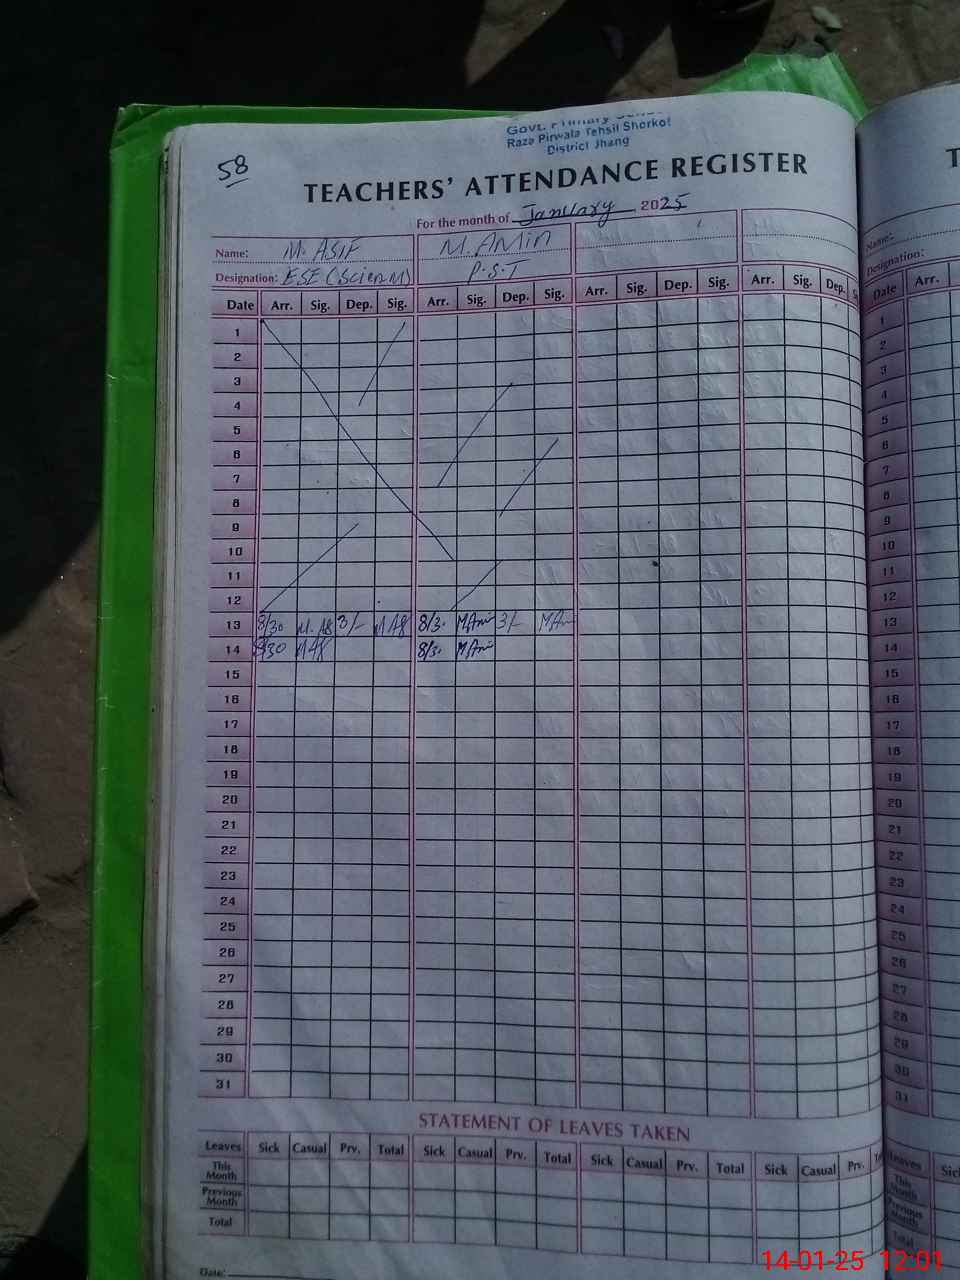 58
Govt. Primary
Raza Pirwala Tehsil Shorkot
District Jhang
TEACHERS' ATTENDANCE REGISTER
For the month of January, 2025
Name: M. ASIF M. AMin
Designation: ESE (Science) P.S.T
Date Arr. Sig. Dep. Sig. Arr. Sig. Dep. Sig. Arr. Sig. Dep. Sig. Arr. Sig. Dep.
1
2
3
4
5
6
7
8
9
10
11
12
13 8/30 3/- 8/3. 3/-
14 8/30 8/3.
15
16
17
18
19
20
21
22
23
24
25
26
27
28
29
30
31
STATEMENT OF LEAVES TAKEN
Leaves Sick Casual Prv. Total Sick Casual Prv. Total Sick Casual Prv. Total Sick Casual Prv.
This Month
Previous Month
Total
Date:
Name:
Designation:
Date Arr.
1
2
3
4
5
6
7
8
9
10
11
12
13
14
15
16
17
18
19
20
21
22
23
24
25
26
27
28
29
30
31
Leaves
This Month
Previous Month
Total
14-01-25 12:01